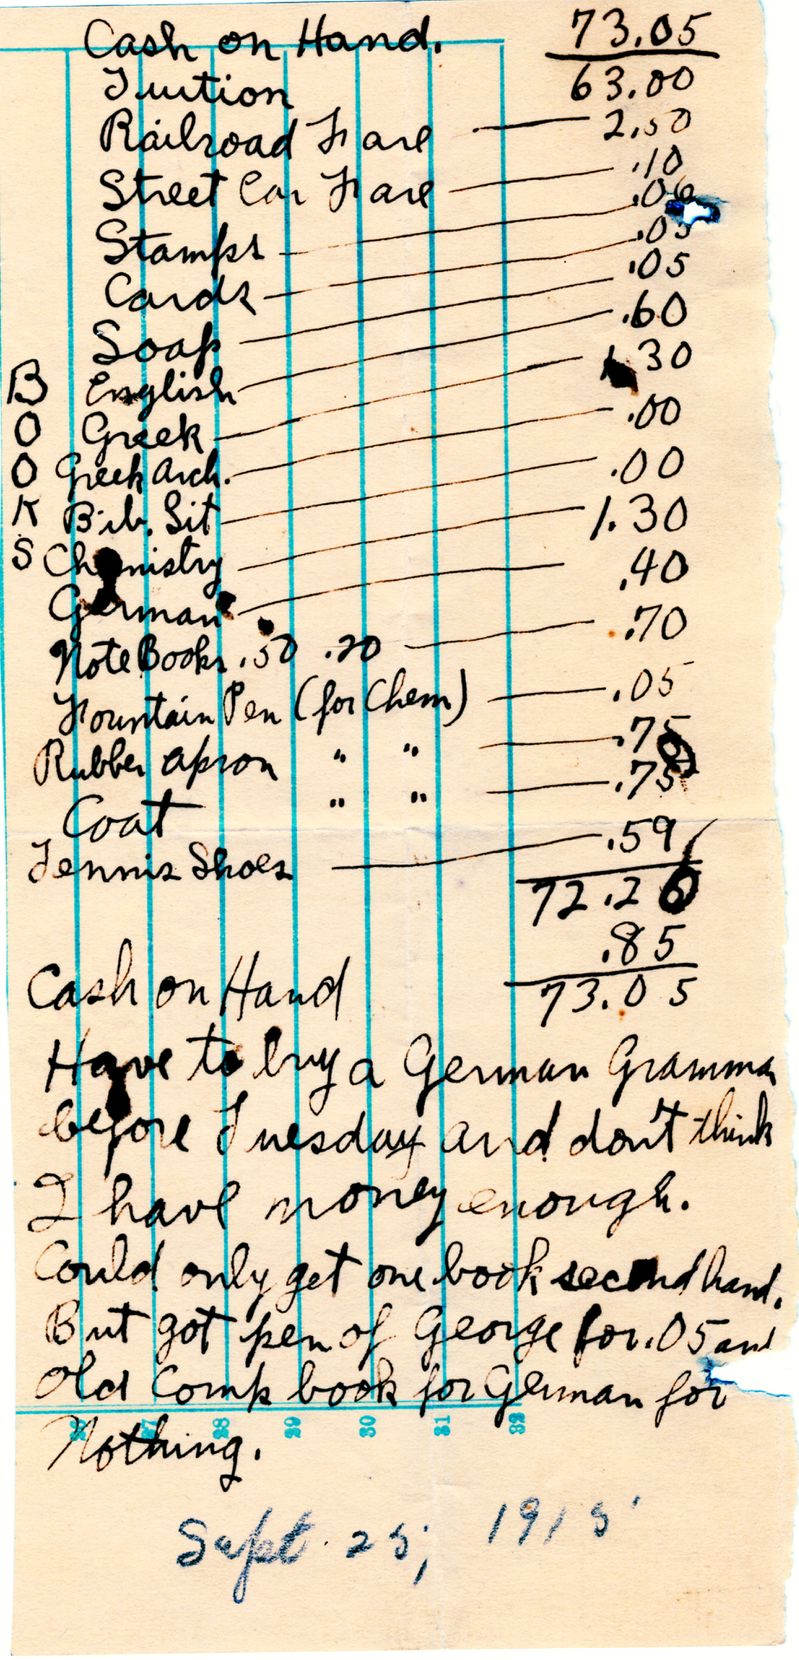 Cash on Hand. 73.05
Tuition 63.00
Railroad Fare 2.50
Street Car Fare .10
Stamps .06
Cards .05
Soap .05
B English .60
O Greek 1.30
O Greek Arch. .00
K Bib. Lit .00
S Chemistry 1.30
German .40
Note Books .50 .20 .70
Fountain Pen (for Chem) .05
Rubber apron " " .75
Coat " " .75
Tennis Shoes .59
72.20
.85
Cash on Hand 73.05
Have to buy a German Gramma
before Tuesday and don't think
I have money enough.
Could only get one book second hand.
But got pen of George for .05 and
Old Comp book for German for
26 27 28 29 30 31 32
Nothing.
Sept. 25, 1915